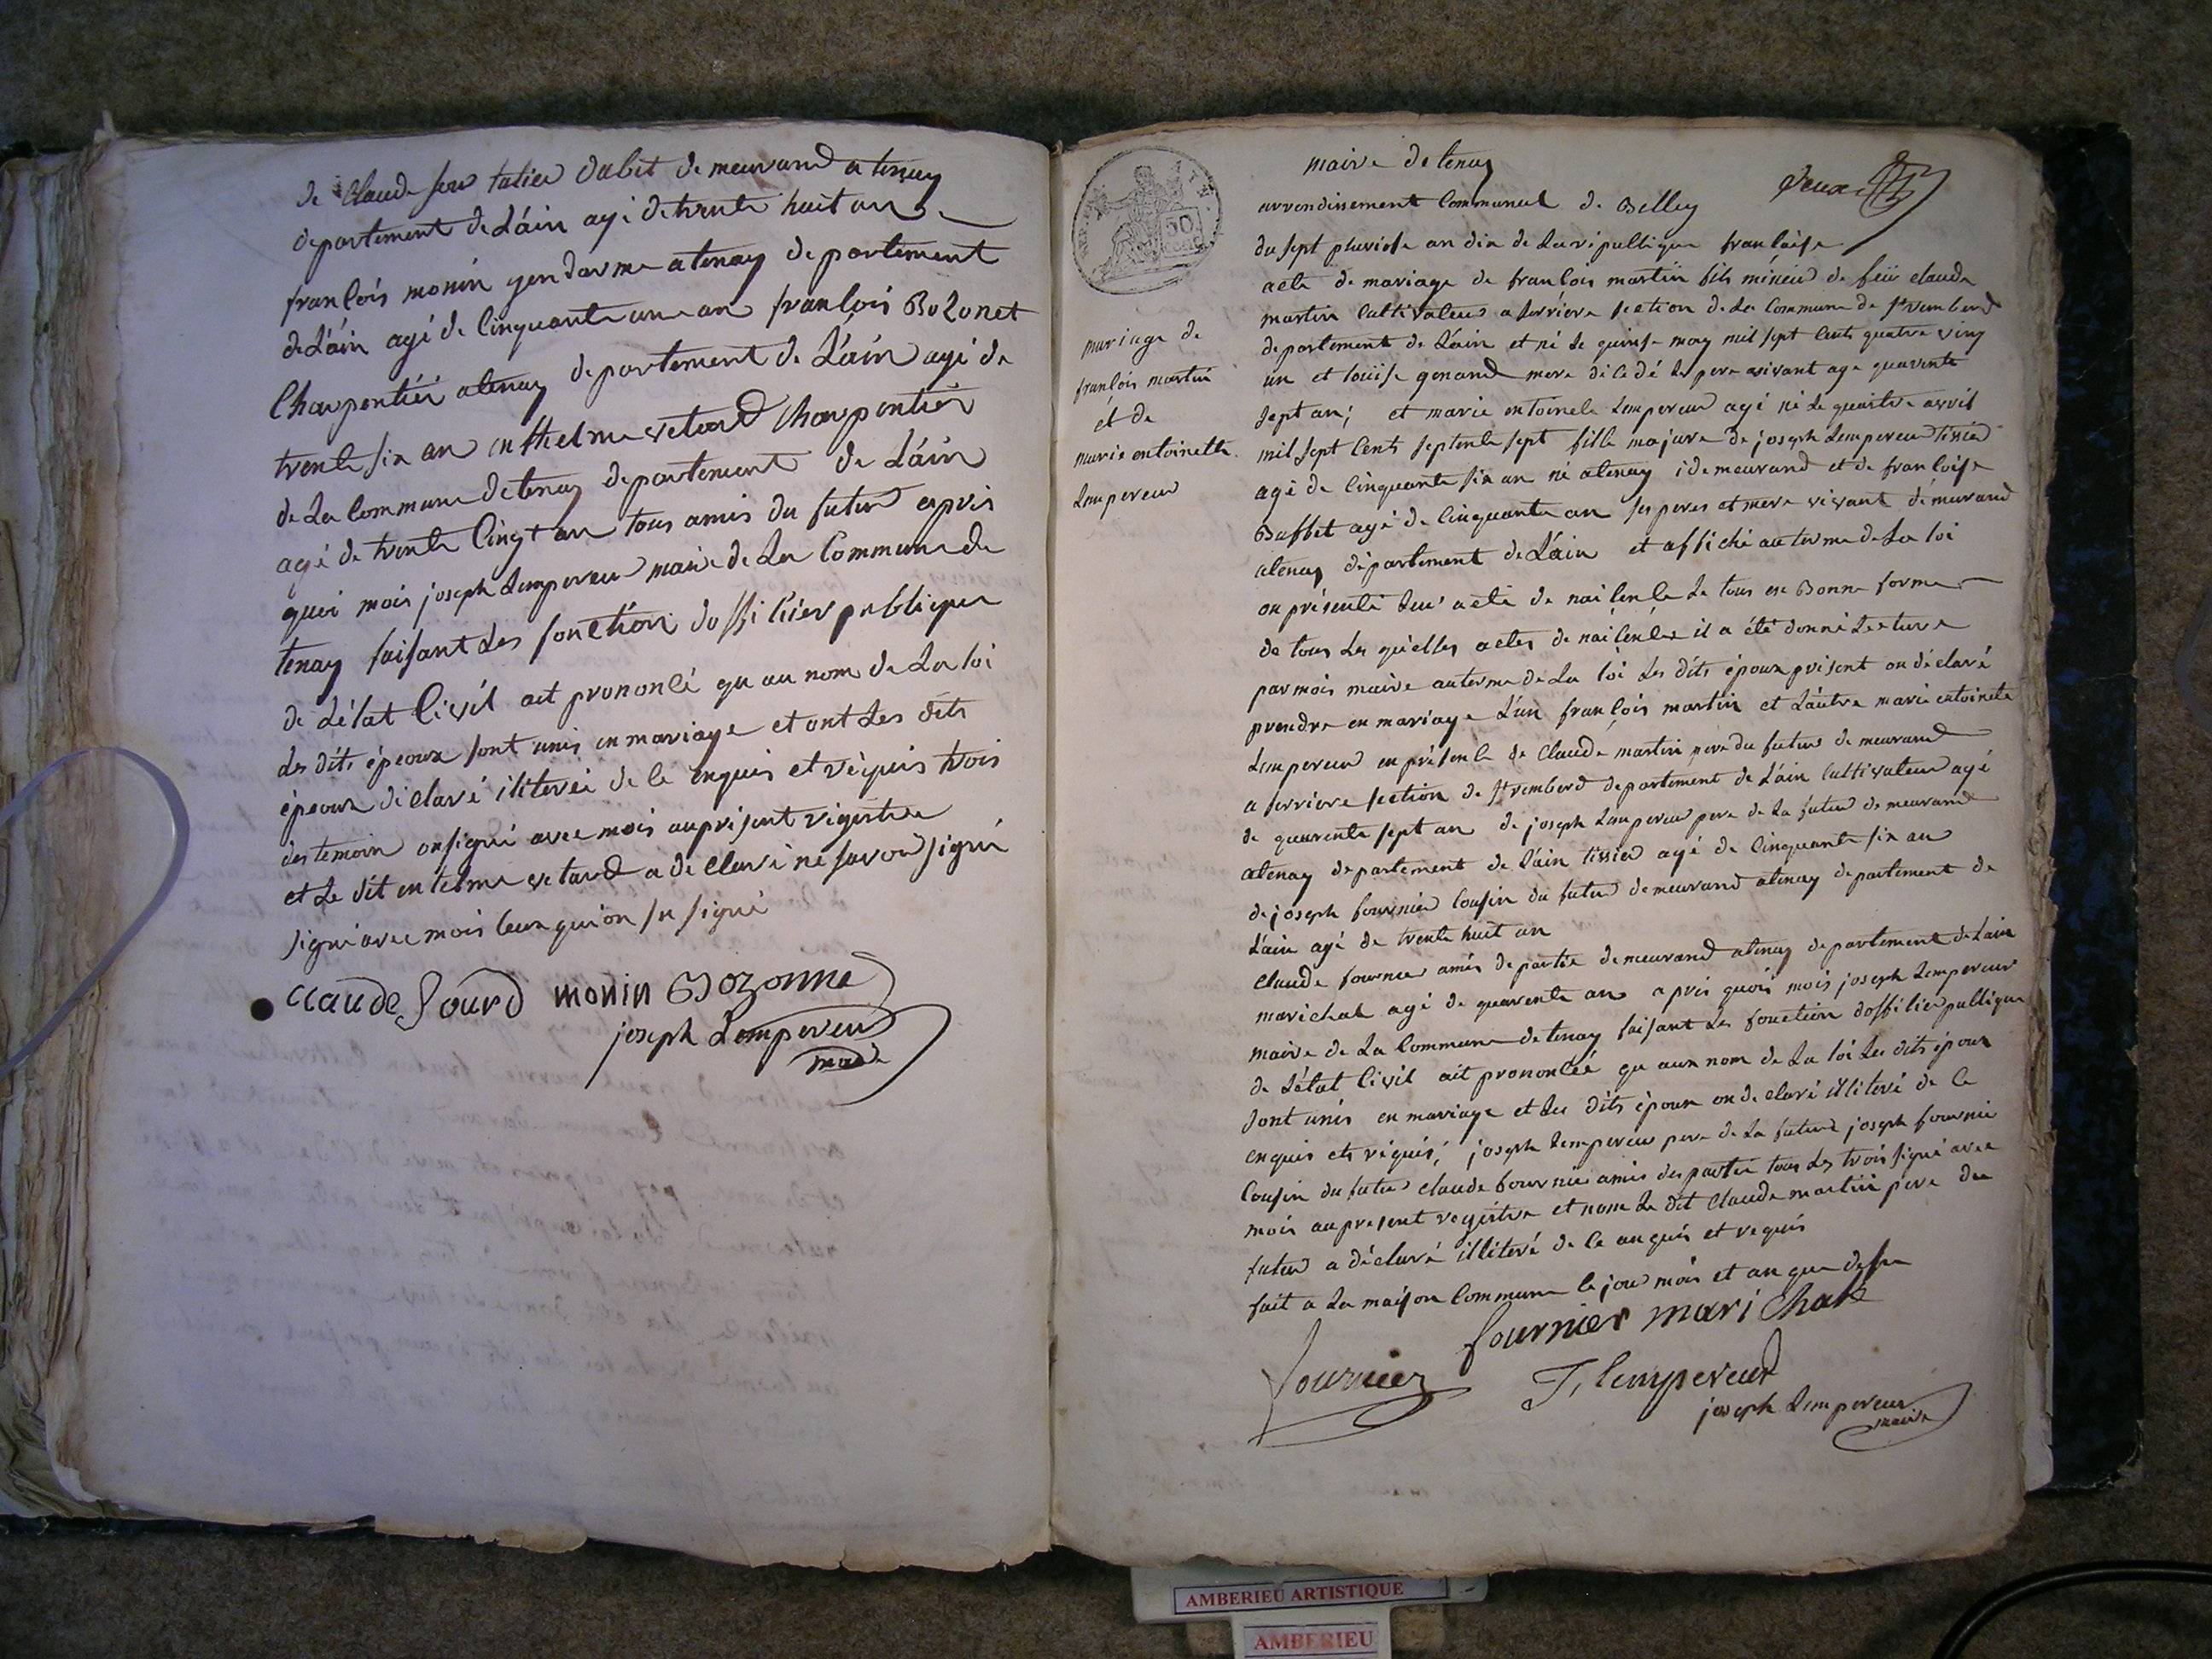 de Claude sou talieu dabit de meurand a tenay
departement de L'áin agé de trente huit ans
franlois monin gendarme a tenay departement
de L'áin agé de linquante une an franlois Bozonet
Charpentiér a tenay departement de L'áin agé de
trente six an enthelme vetard Charpentiér
de La Commune de tenay departement de L'áin
agé de trente Cinqt an tous amis du futur aprés
quoi mois joseph Lempereur maire de La Commune de
tenay faisant Les fonction doffilier publique
de L'état Civil ait prononlé qu au nom de La loi
Les dits époux sont unis en mariage et ont Les dits
époux déclaré iliteré de le enquis et réquis trois
des temoin on signé avec mois au présent régistre
et Le dit entelme vetard a déclaré né savoir signé
signé avec mois leux qui on su signé
Claude Sourd monin Bozonne
joseph Lempereur
maire
mariage de
franlois martin
et de
marie entoinette
Lempereur
50
maire de tenay
deux
arrondissement Communal de Belley
du sept pluviose an dix de La république franlaise
acte de mariage de franlois martin fils mineur de feü claude
martin Cultivateur a serriere section de La Commune de st rembert
departement de L'ain et né Le quinse may mil sept Cents quatre ving
un et loüise genand mere décédé Le pere vivant age quarente
sept an; et marie entoinete Lempereur agé né Le quatre avril
mil sept Cents septente sept fille majure de joseph Lempereur tisier
agé de Cinquante six an né a tenay i demeurand et de franloise
Buffet agé de Cinquante an ses peres et mere vivant démurand
a tenay département de L'ain et affiché au terme de La loi
on présenté Leur acte de naisenle Le tous en Bonne forme
de tous Les quelles actes de naisenles il a été donné Lecture
par mois maire au terme de La loi Les dits époux présent on déclaré
prendre en mariage L'un franlois martin et L'autre marie entoinete
Lempereur en présenle de Claude martin pere du futur demeurand
a serriere section de st rembert departement de L'ain Cultivateur agé
de quarente sept an de joseph Lempereur pere de La futur demeurand
a tenay departement de L'ain tissier agé de Cinquante six an
de joseph fournier Cousin du futur demeurand a tenay departement de
L'ain agé de trente huit an
Claude fournier amis de partie demeurand a tenay departement de L'ain
marichal agé de quarente an aprés quois mois joseph Lempereur
maire de La Commune de tenay faisant Les fonction doffilier publique
de L'état Civil ait prononlée qu aux nom de La loi Les dits époux
sont unis en mariage et Les dits époux on déclaré illiteré de le
enquis ets réquis; joseph Lempereur pere de La future joseph fournié
Cousin du futur claude fournié amis des partie tous Les trois signé avec
mois au present régistre et nom Le dit Claude martin pére du
futur a déclaré illiteré de le enquis et requis
fait a La maison Commune le jour mois et an que desu
fournier marichal
fournier
J, lempereur
joseph Lempereur
maire
AMBERIEU ARTISTIQUE
AMBERIEU